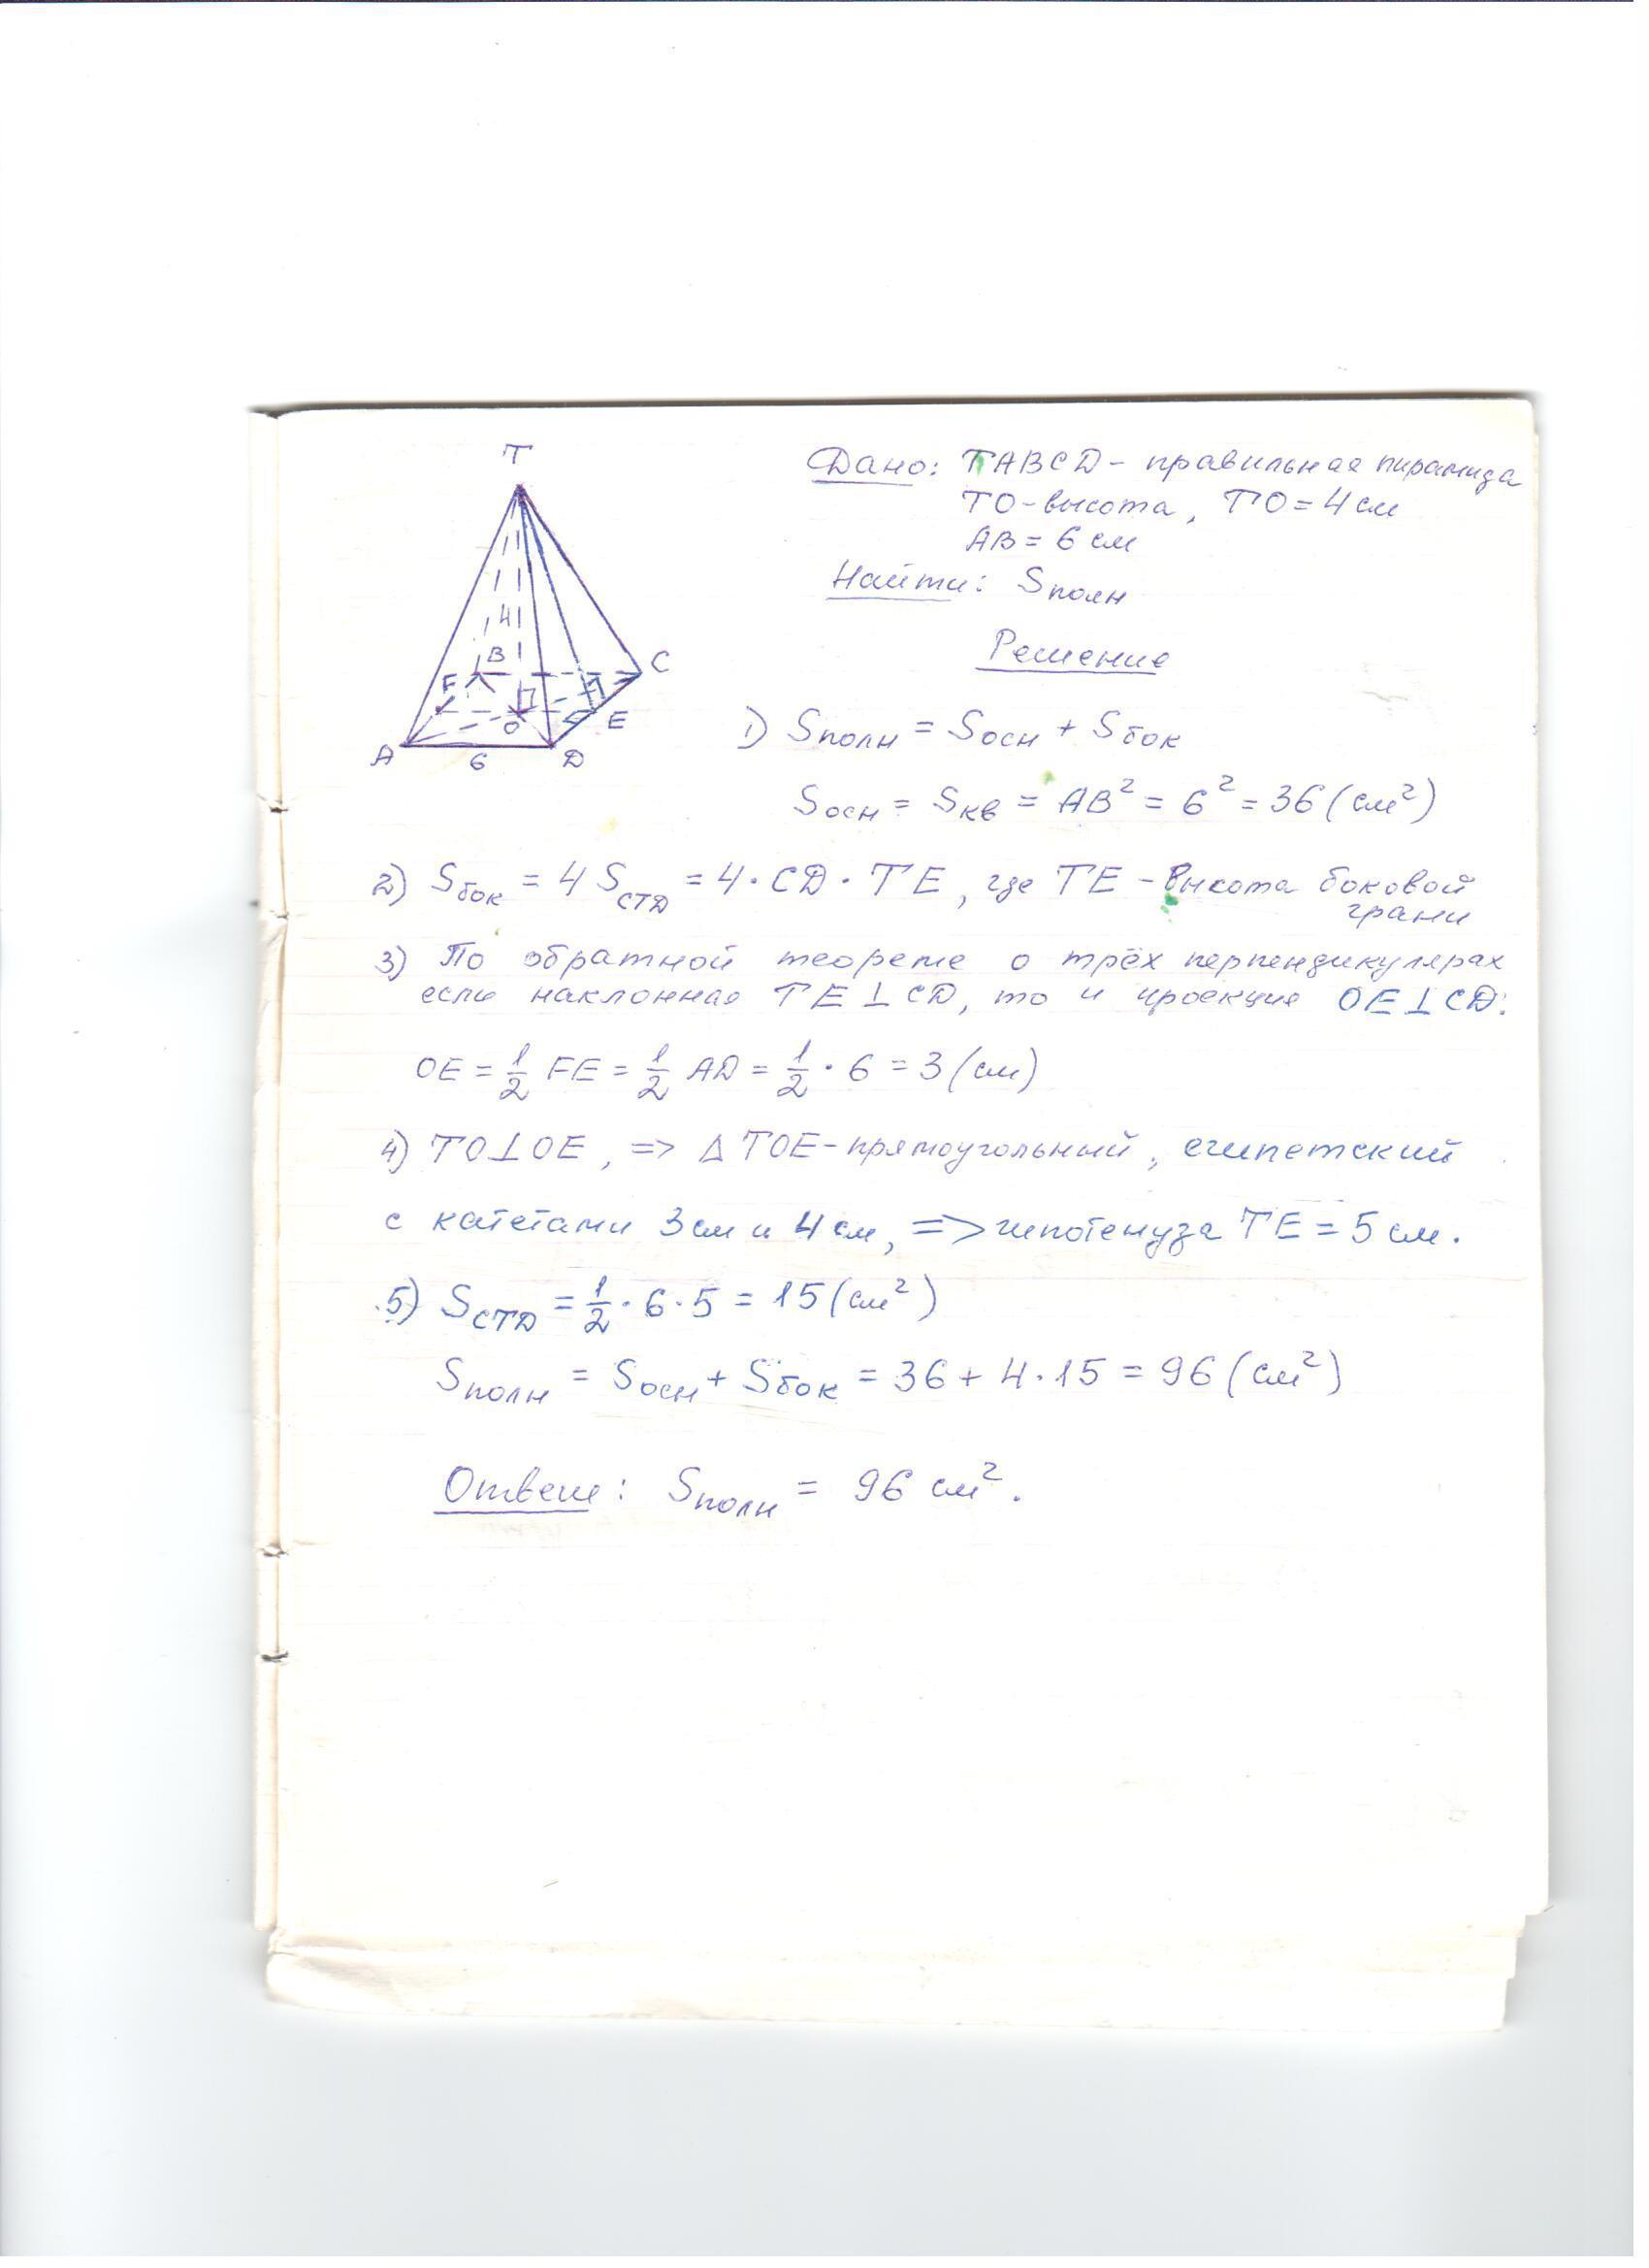 T
4
B
C
F
O
E
A
6
D
Дано: TABCD - правильная пирамида
TO - высота, TO = 4 см
AB = 6 см
Найти: Sполн
Решение
1) Sполн = Sосн + Sбок
Sосн = Sкв = AB² = 6² = 36 (см²)
2) Sбок = 4 S_CTD = 4 · CD · TE, где TE - высота боковой
грани
3) По обратной теореме о трёх перпендикулярах
если наклонная TE ⊥ CD, то и проекция OE ⊥ CD:
OE = 1/2 FE = 1/2 AD = 1/2 · 6 = 3 (см)
4) TO ⊥ OE, => Δ TOE - прямоугольный, египетский
с катетами 3 см и 4 см, => гипотенуза TE = 5 см.
5) S_CTD = 1/2 · 6 · 5 = 15 (см²)
Sполн = Sосн + Sбок = 36 + 4 · 15 = 96 (см²)
Ответ: Sполн = 96 см².